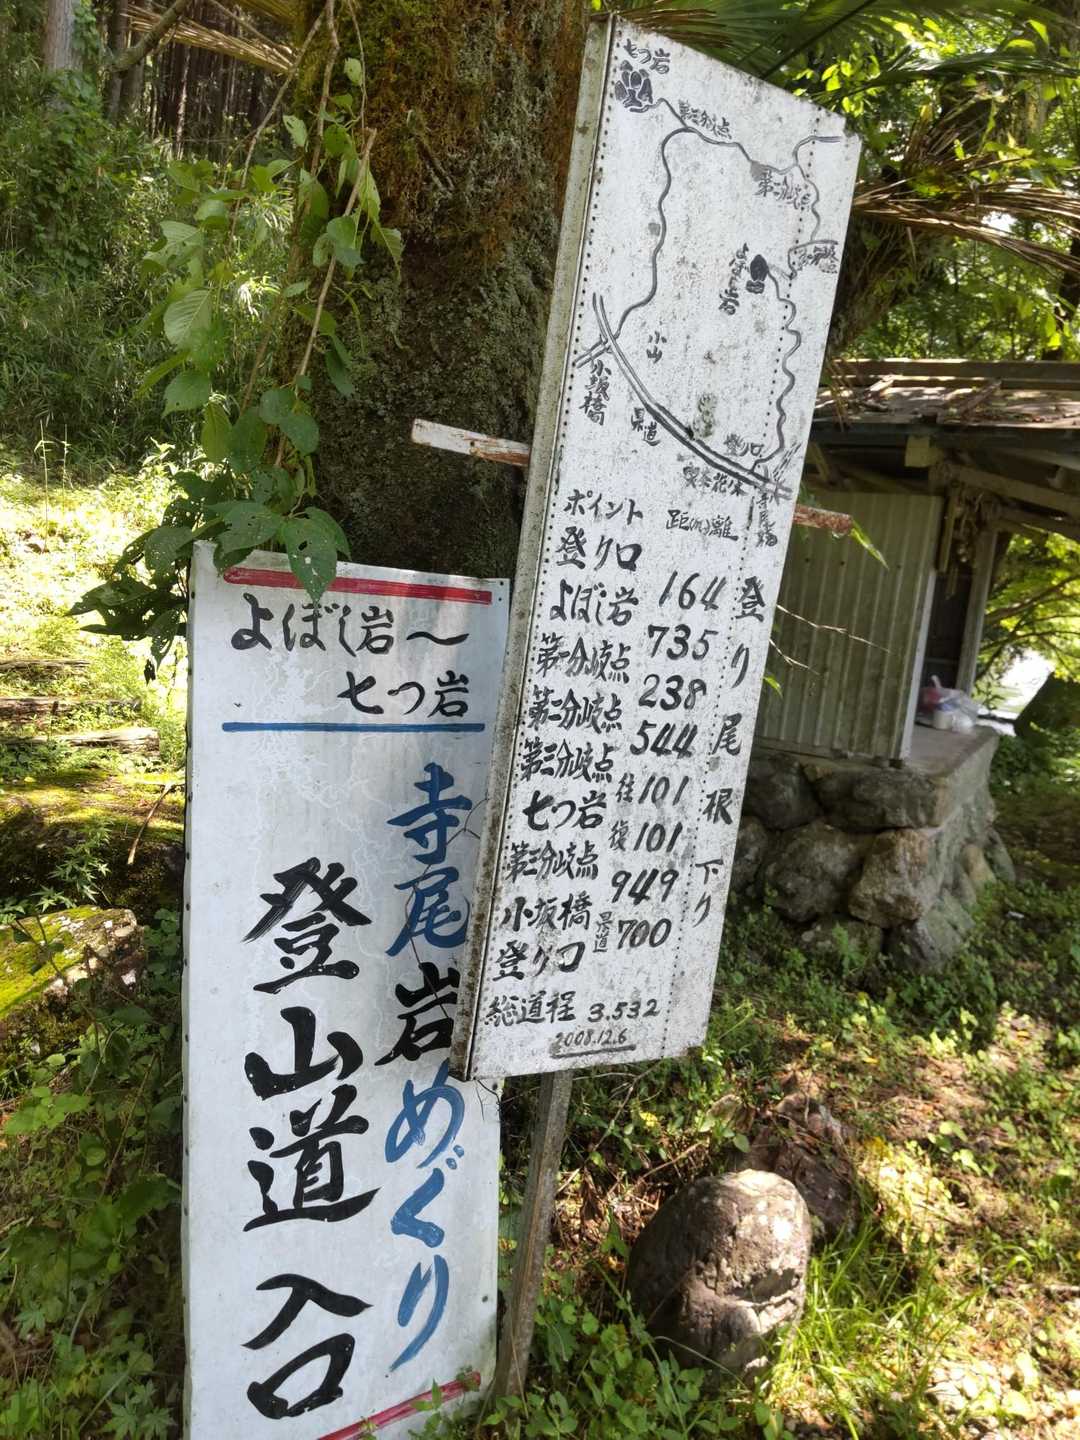 よぼし岩～
七つ岩
寺尾岩めぐり
登山道入口
七つ岩
第三分岐点
第二分岐点
よぼし岩
小山
小坂橋
県道
登り口
寺尾橋
ポイント 距(m)離
登り口
164
よぼし岩
735
第一分岐点
238
第二分岐点
544
第三分岐点
往101
七つ岩
復101
第三分岐点
949
小坂橋
県道700
登り口
登り
尾根
下り
総道程 3.532
2008.12.6